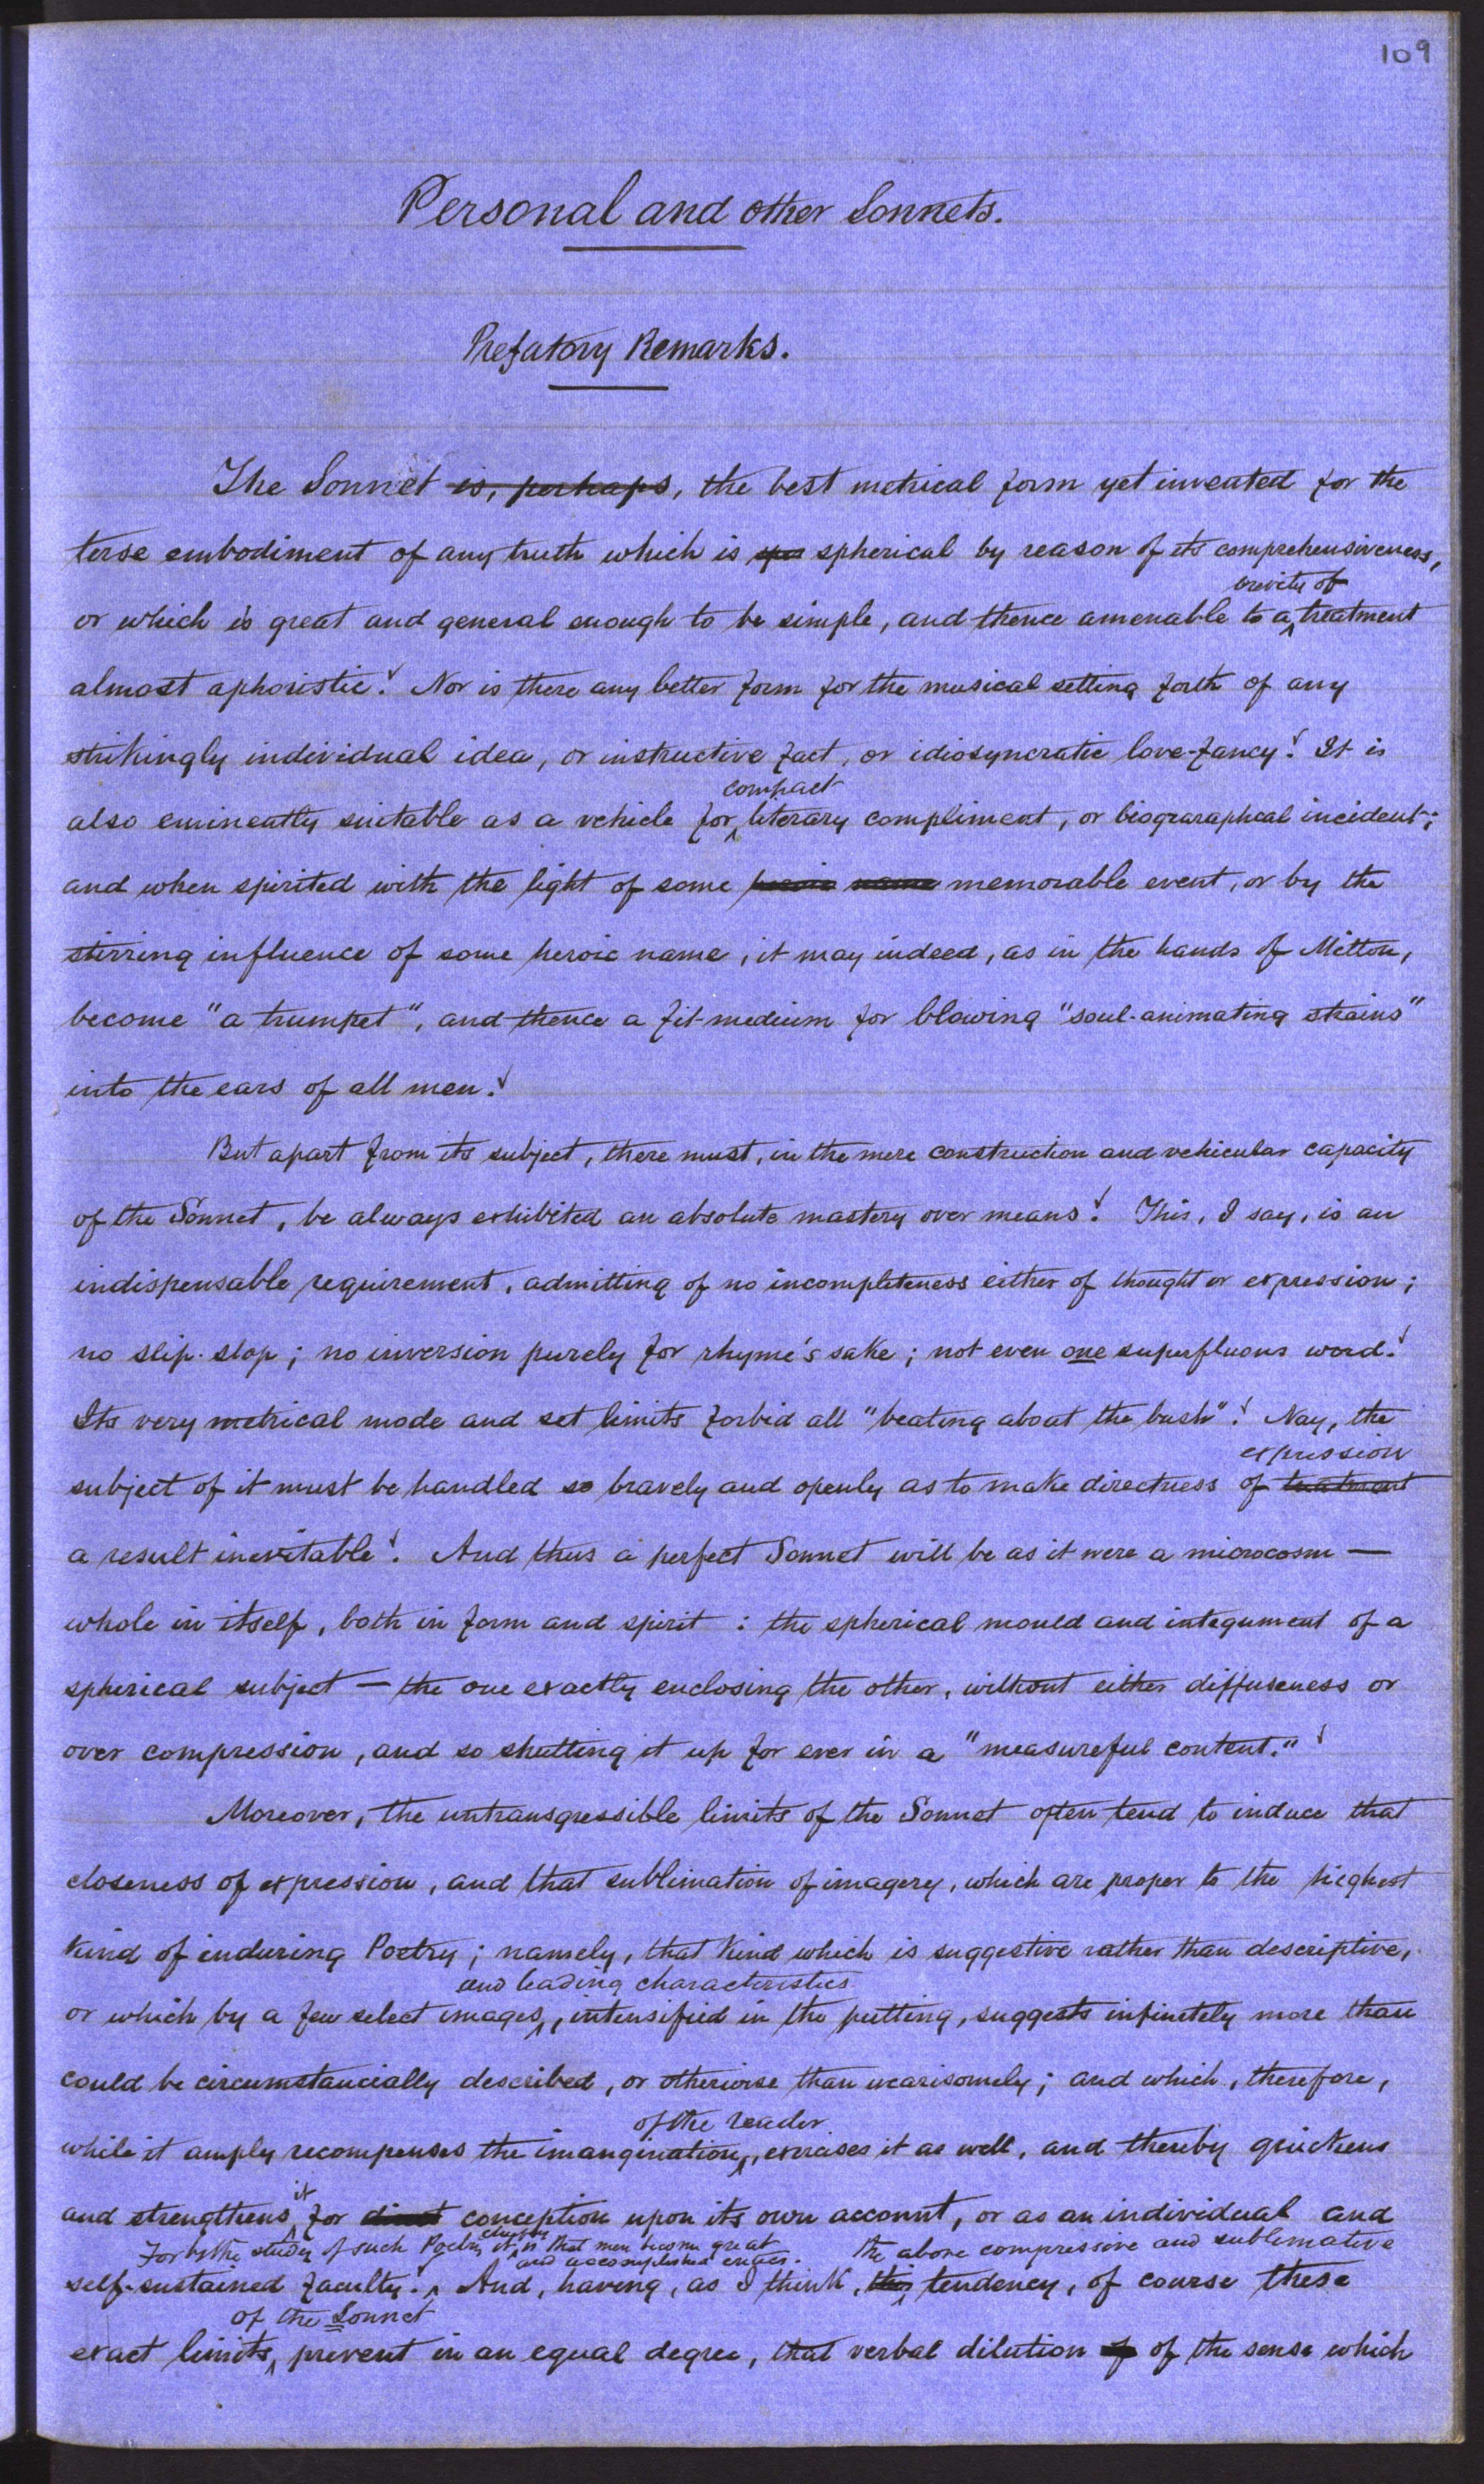 109
Personal and other Sonnets.
Prefatory Remarks.
The Sonnet is, perhaps, the best metrical form yet invented for the
terse embodiment of any truth which is spe spherical by reason of its comprehensiveness,
brevity of
or which is great and general enough to be simple, and thence amenable to a ^ treatment
almost aphoristic. Nor is there any better form for the musical setting forth of any
strikingly individual idea, or instructive fact, or idiosyncratic love-fancy. It is
compact
also eminently suitable as a vehicle for ^ literary compliment, or biograraphcal incident;
and when spirited with the light of some heroic name memorable event, or by the
stirring influence of some heroic name, it may indeed, as in the hands of Milton,
become "a trumpet", and thence a fit medium for blowing "soul-animating strains"
into the ears of all men.
But apart from its subject, there must, in the mere construction and vehicular capacity
of the Sonnet, be always exhibited an absolute mastery over means. This, I say, is an
indispensable requirement, admitting of no incompleteness either of thought or expression;
no slip-slop; no inversion purely for rhyme's sake; not even one superfluous word.
Its very metrical mode and set limits forbid all "beating about the bush". Nay, the
expression
subject of it must be handled so bravely and openly as to make directness of treatment
a result inevitable. And thus a perfect Sonnet will be as it were a microcosm —
whole in itself, both in form and spirit : the spherical mould and integument of a
spherical subject — the one exactly enclosing the other, without either diffuseness or
over compression, and so shutting it up for ever in a "measureful content."
Moreover, the untransgressible limits of the Sonnet often tend to induce that
closeness of expression, and that sublimation of imagery, which are proper to the highest
kind of enduring Poetry; namely, that kind which is suggestive rather than descriptive,
and leading characteristics
or which by a few select images ^, intensified in the putting, suggests infinitely more than
could be circumstancially described, or otherwise than wearisomely; and which, therefore,
of the reader
while it amply recompenses the imangination ^, exercises it as well, and thereby quickens
it
and strengthens ^ for direct conception upon its own account, or as an individual and
chiefly
For by the study of such Poetry it ^ is that men become great the above compressive and sublimative
and accomplished critics.
self-sustained faculty. ^ And, having, as I think, this ^ tendency, of course these
of the Sonnet
exact limits ^, prevent in an equal degree, that verbal dilution of of the sense which